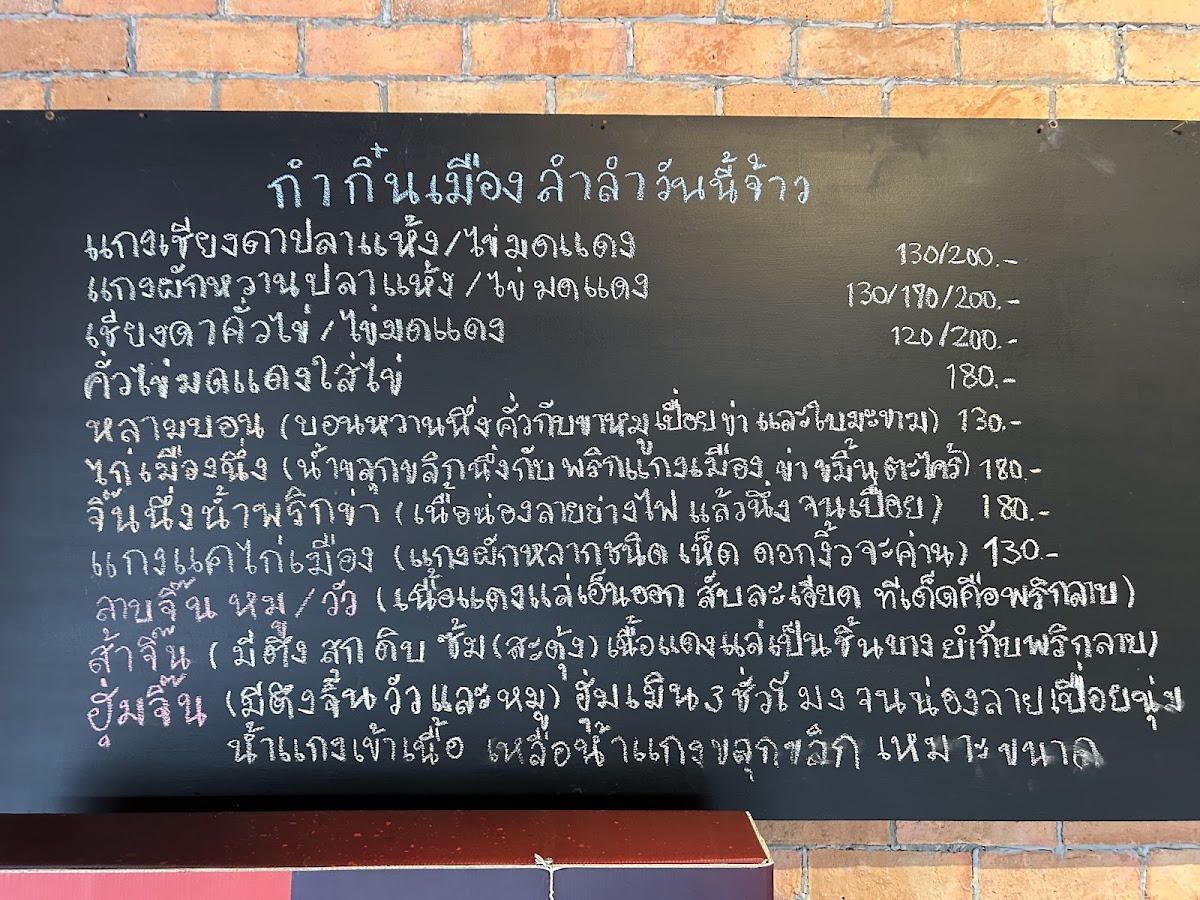 กำกิ๋นเมือง ลำลำวันนี้จ้าว
แกงเชียงดาปลาแห้ง/ไข่มดแดง 130/200.-
แกงผักหวานปลาแห้ง/ไข่มดแดง 130/190/200.-
เชียงดาคั่วไข่/ไข่มดแดง 120/200.-
คั่วไข่มดแดงใส่ไข่ 180.-
หลามบอน (บอนหวานนึ่งคั่วกับขาหมูเปื่อยข่า และใบมะขาม) 130.-
ไก่เมืองนึ่ง (น้ำขลุกขลิกนึ่งกับ พริกแกงเมือง ข่า ขมิ้น ตะไคร้) 180.-
จิ๊นนึ่งน้ำพริกข่า (เนื้อน่องลายย่างไฟ แล้วนึ่ง จนเปื่อย) 180.-
แกงแคไก่เมือง (แกงผักหลากชนิด เห็ด ดอกงิ้ว จะค่าน) 130.-
ลาบจิ๊น หมู/วัว (เนื้อแดงแล่เอ็นออก สับละเอียด ทีเด็ดคือพริกลาบ)
ส้าจิ๊น (มีตึง สุก ดิบ ซั้ม (สะดุ้ง) เนื้อแดงแล่เป็นชิ้นบาง ยำกับพริกลาบ)
ฮุ่มจิ๊น (มีตึงจิ๊น วัว และหมู) ฮุ่มเมิน 3 ชั่วโมง จนน่องลายเปื่อยนุ่ม
น้ำแกงเข้าเนื้อ เหลือน้ำแกงขลุกขลิก เหมาะขนาด